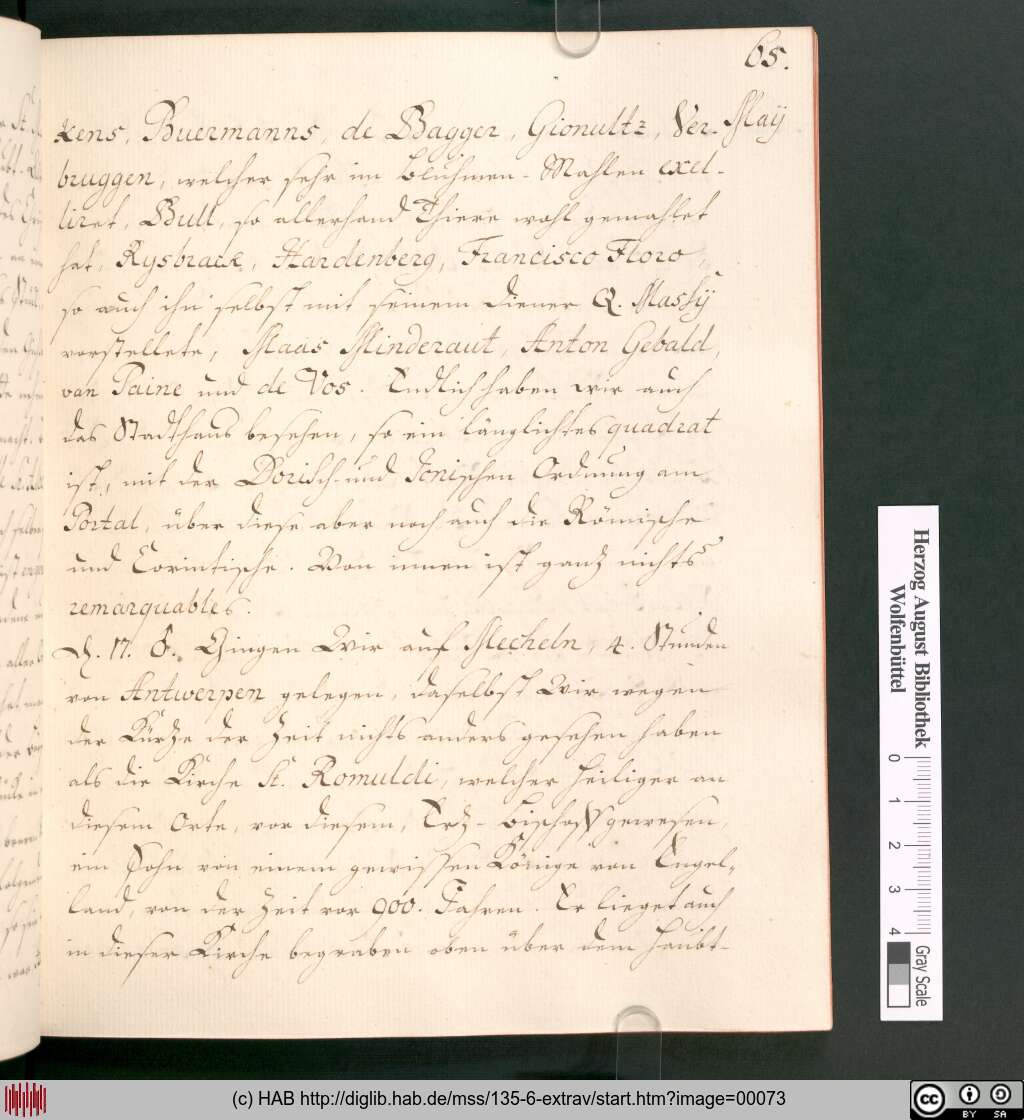 65.
May
kens, Buermanns, de Bagger, Gionultz, Ver-
bruggen, welcher sehr im Bluhmen-Mahlen excel-
liret, Bull, so allerhand Thiere wohl gemahlet
hat, Rysbrack, Hardenberg, Francisco Floro,
so auch ihn selbst mit seinem Diener Q. Massÿ
vorstellete, Maas Minderaut, Anton Gebald,
van Paine und de Vos. Endlich haben wir auch
das Stadthaus besehen, so ein länglichtes quadrat
ist, mit der Dorisch- und Jonischen Ordnung am
Portal, über diese aber noch auch die Römische
und Corintische. Von innen ist ganz nichts
remarquables.
D. 17. Giengen Wir auf Mecheln, 4. Stunden
von Antwerpen gelegen, daselbst Wir wegen
der Kürze der Zeit nichts anders gesehen haben
als die Kirche St. Romuldi, welcher Heiliger an
diesem Orte, vor diesem, Erz-Bischoff gewesen,
ein Sohn von einem gewissen Könige von Engel-
land, von der Zeit vor 900. Jahren. Er lieget auch
in dieser Kirche begraben oben über dem Haubt-
Herzog August Bibliothek
Wolfenbüttel
0 1 2 3 4
Gray Scale
(c) HAB http://diglib.hab.de/mss/135-6-extrav/start.htm?image=00073
cc BY SA